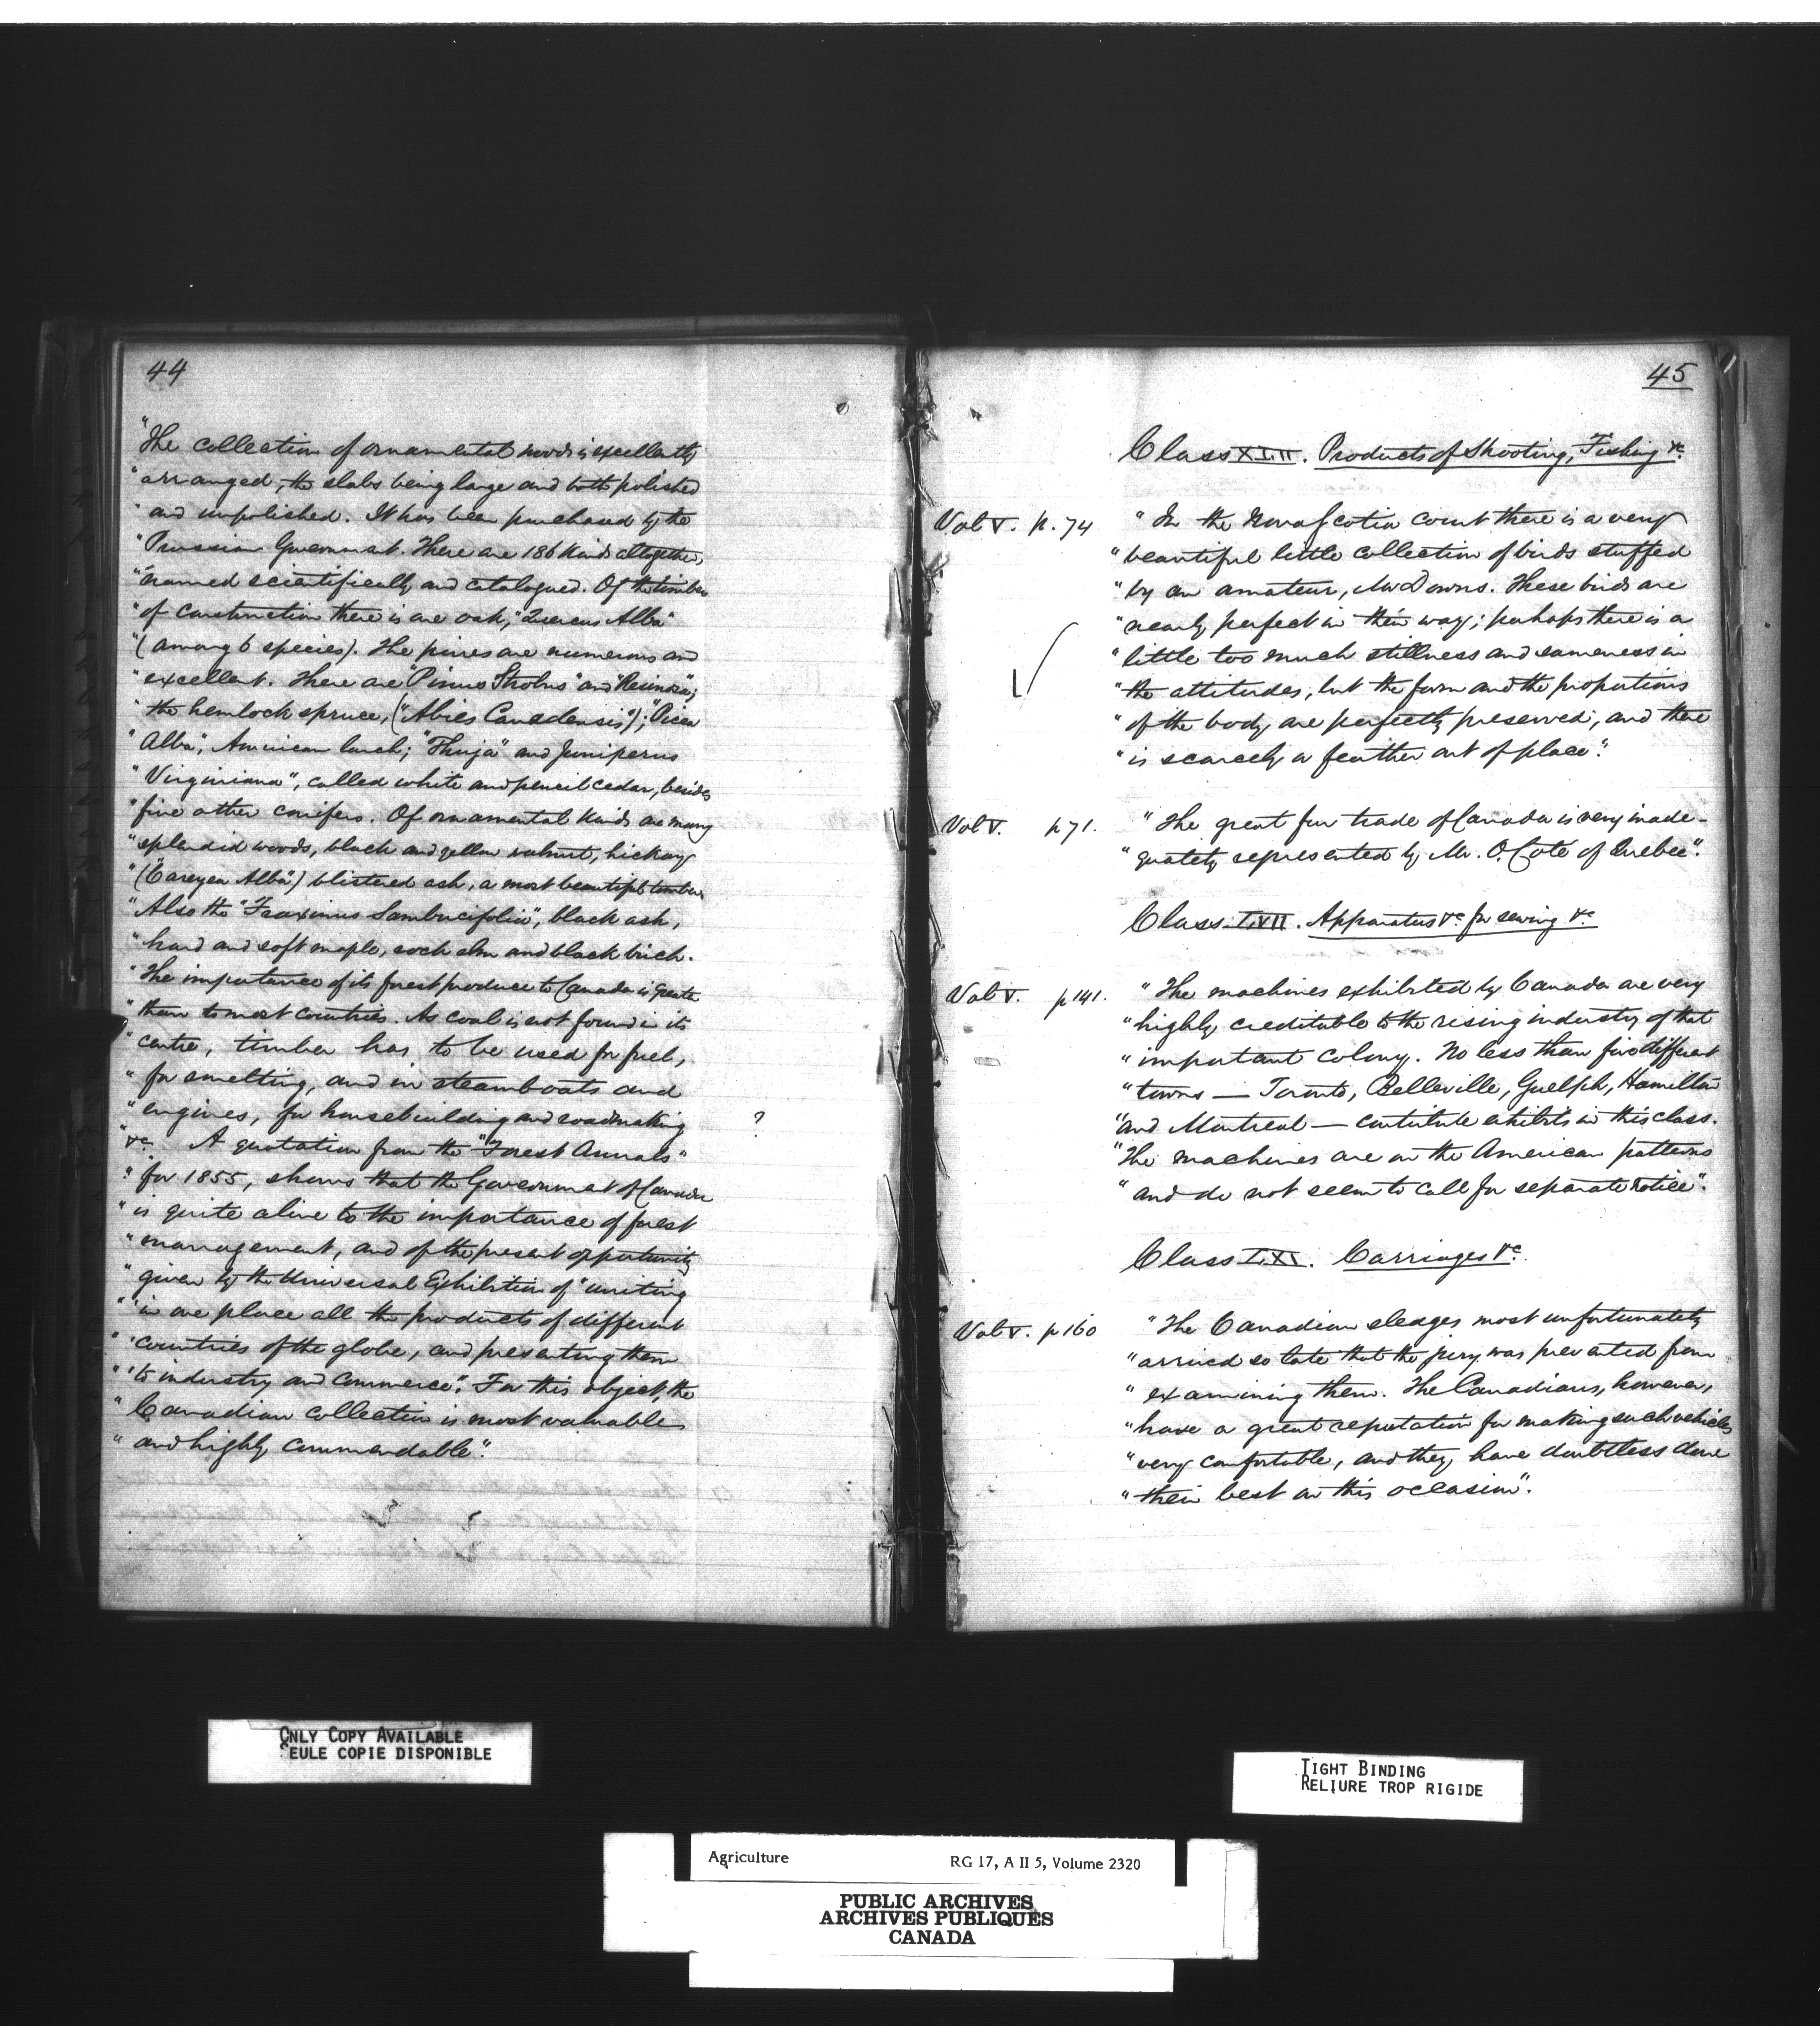 44
"The collection of ornamental woods is excellently
"arranged, the slabs being large and both polished
"and unpolished. It has been purchased by the
"Prussian Government. There are 186 kinds altogether,
"named scientifically and catalogued. Of the timber
"of construction there is one oak, "Quercus Alba"
"(among 6 species). The pines are numerous and
"excellent. There are "Pinus Strobus" and "Resinosa";
"the hemlock spruce, ("Abies Canadensis"); "Picea
"Alba", American larch; "Thuja" and Juniperus
"Virginiana", called white and pencil cedar, besides
"five other conifers. Of ornamental kinds are many
"splendid woods, black and yellow walnut, hickory
"("Careyea Alba") blistered ash, a most beautiful timber.
"Also the "Fraxinus Sambucifolia", black ash,
"hard and soft maple, rock elm and black birch.
"The importance of its forest produce to Canada is greater
"than to most countries. As coal is not found in its
"centre, timber has to be used for fuel,
"for smelting, and in steamboats and
"engines, for housebuilding and roadmaking
?
"&c. A quotation from the "Forest Annals"
"for 1855, shows that the Government of Canada
"is quite alive to the importance of forest
"management, and of the present opportunity
"given by the Universal Exhibition of "uniting
"'in one place all the products of different
"'countries of the globe, and presenting them
"'to industry and commerce". For this object, the
"Canadian collection is most valuable
"and highly commendable".
45
Class XLII. Products of Shooting, Fishing &c.
Vol V. p. 74
"In the Nova Scotia court there is a very
"beautiful little collection of birds stuffed
"by an amateur, Mr Downs. These birds are
"nearly perfect in their way; perhaps there is a
"little too much stillness and sameness in
"the attitudes, but the form and the proportions
"of the body are perfectly preserved, and there
"is scarcely a feather out of place".
Vol V. p 71.
"The great fur trade of Canada is very inade-
"quately represented by Mr. O. Coté of Quebec".
Class LVII. Apparatus &c for sewing &c
Vol V. p 141.
"The machines exhibited by Canada are very
"highly creditable to the rising industry of that
"important colony. No less than five different
"towns — Toronto, Belleville, Guelph, Hamilton
"and Montreal — contribute exhibits in this class.
"The machines are on the American patterns
"and do not seem to call for separate notice".
Class LXI. Carriages &c.
Vol V. p 160
"The Canadian sledges most unfortunately
"arrived so late that the jury was prevented from
"examining them. The Canadians, however,
"have a great reputation for making such vehicles
"very comfortable, and they have doubtless done
"their best on this occasion".
ONLY COPY AVAILABLE
SEULE COPIE DISPONIBLE
TIGHT BINDING
RELIURE TROP RIGIDE
Agriculture RG 17, A II 5, Volume 2320
PUBLIC ARCHIVES
ARCHIVES PUBLIQUES
CANADA